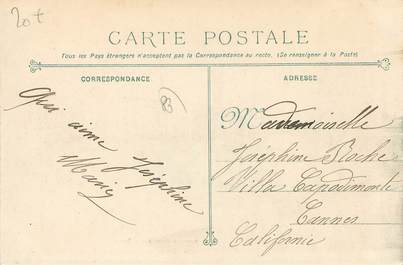 20+
CARTE POSTALE
Tous les Pays étrangers n'acceptent pas la Correspondance au recto. (Se renseigner à la Poste)
CORRESPONDANCE
ADRESSE
83
Qui aime Joséphine
Marie
Mademoiselle
Joséphine Roche
Villa Capodimonte
Cannes
Californie